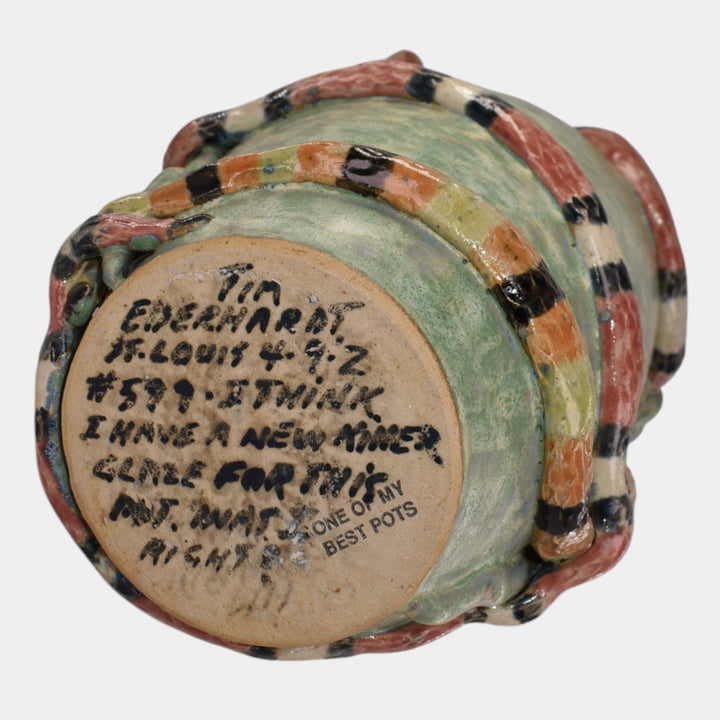 TIM
EBERHARDT
ST. LOUIS 4.9.2
#599. I THINK
I HAVE A NEW
GLAZE FOR THIS
POT. WAT I
RIGHT
ONE OF MY
BEST POTS